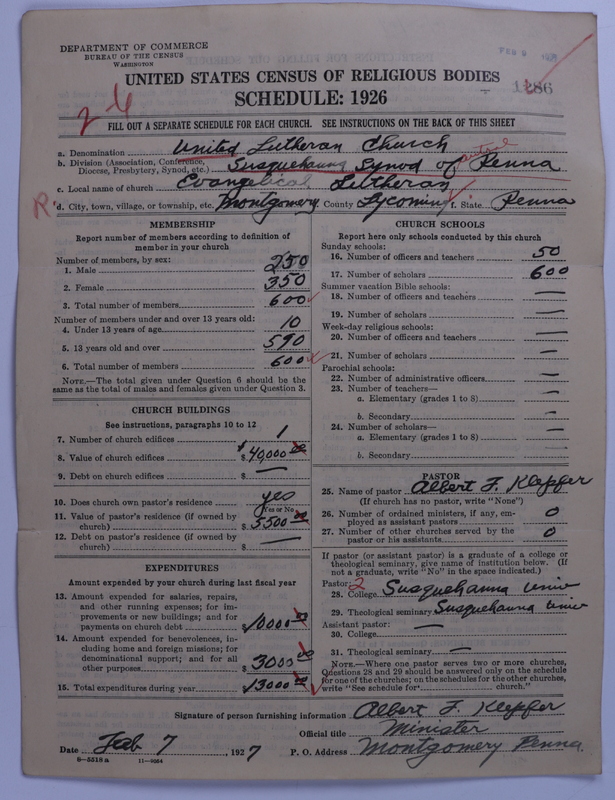 DEPARTMENT OF COMMERCE
BUREAU OF THE CENSUS
WASHINGTON
FEB 9
1286
UNITED STATES CENSUS OF RELIGIOUS BODIES
SCHEDULE: 1926
2-6
FILL OUT A SEPARATE SCHEDULE FOR EACH CHURCH. SEE INSTRUCTIONS ON THE BACK OF THIS SHEET
a. Denomination United Lutheran Church
b. Division (Association, Conference, Diocese, Presbytery, Synod, etc.) Susquehanna Synod of Central Penna
c. Local name of church Evangelical Lutheran
R d. City, town, village, or township, etc. Montgomery County Lycoming f. State Penna
MEMBERSHIP
Report number of members according to definition of
member in your church
Number of members, by sex:
1. Male 250
2. Female 350
3. Total number of members 600
Number of members under and over 13 years old:
4. Under 13 years of age 10
5. 13 years old and over 590
6. Total number of members 600
NOTE.—The total given under Question 6 should be
same as the total of males and females given under Question 3.
CHURCH BUILDINGS
See instructions, paragraphs 10 to 12
7. Number of church edifices 1
8. Value of church edifices $40,000 00
9. Debt on church edifices $ —
10. Does church own pastor's residence yes
(Yes or No)
11. Value of pastor's residence (if owned by
church) $5500 00
12. Debt on pastor's residence (if owned by
church) $ —
EXPENDITURES
Amount expended by your church during last fiscal year
13. Amount expended for salaries, repairs,
and other running expenses; for im-
provements or new buildings; and for
payments on church debt $10000 00
14. Amount expended for benevolences, in-
cluding home and foreign missions; for
denominational support; and for all
other purposes $3000 00
15. Total expenditures during year $13000 00
CHURCH SCHOOLS
Report here only schools conducted by this church
Sunday schools:
16. Number of officers and teachers 50
17. Number of scholars 600
Summer vacation Bible schools:
18. Number of officers and teachers —
19. Number of scholars —
Week-day religious schools:
20. Number of officers and teachers —
21. Number of scholars —
Parochial schools:
22. Number of administrative officers —
23. Number of teachers—
a. Elementary (grades 1 to 8) —
b. Secondary —
24. Number of scholars—
a. Elementary (grades 1 to 8) —
b. Secondary —
PASTOR
25. Name of pastor Albert F. Klepfer
(If church has no pastor, write "None")
26. Number of ordained ministers, if any, em-
ployed as assistant pastors 0
27. Number of other churches served by the
pastor or his assistants 0
If pastor (or assistant pastor) is a graduate of a college or
theological seminary, give name of institution below. (If
not a graduate, write "No" in the space indicated.)
Pastor: 2
28. College Susquehanna Univ
29. Theological seminary Susquehanna Univ
Assistant pastor:
30. College —
31. Theological seminary —
NOTE.—Where one pastor serves two or more churches,
Questions 28 and 29 should be answered only on the schedule
for one of the churches; on the schedules for the other churches,
write "See schedule for church."
Signature of person furnishing information Albert F. Klepfer
Official title Minister
Date Feb 7, 1927 P. O. Address Montgomery Penna.
8—5518 a 11—9264